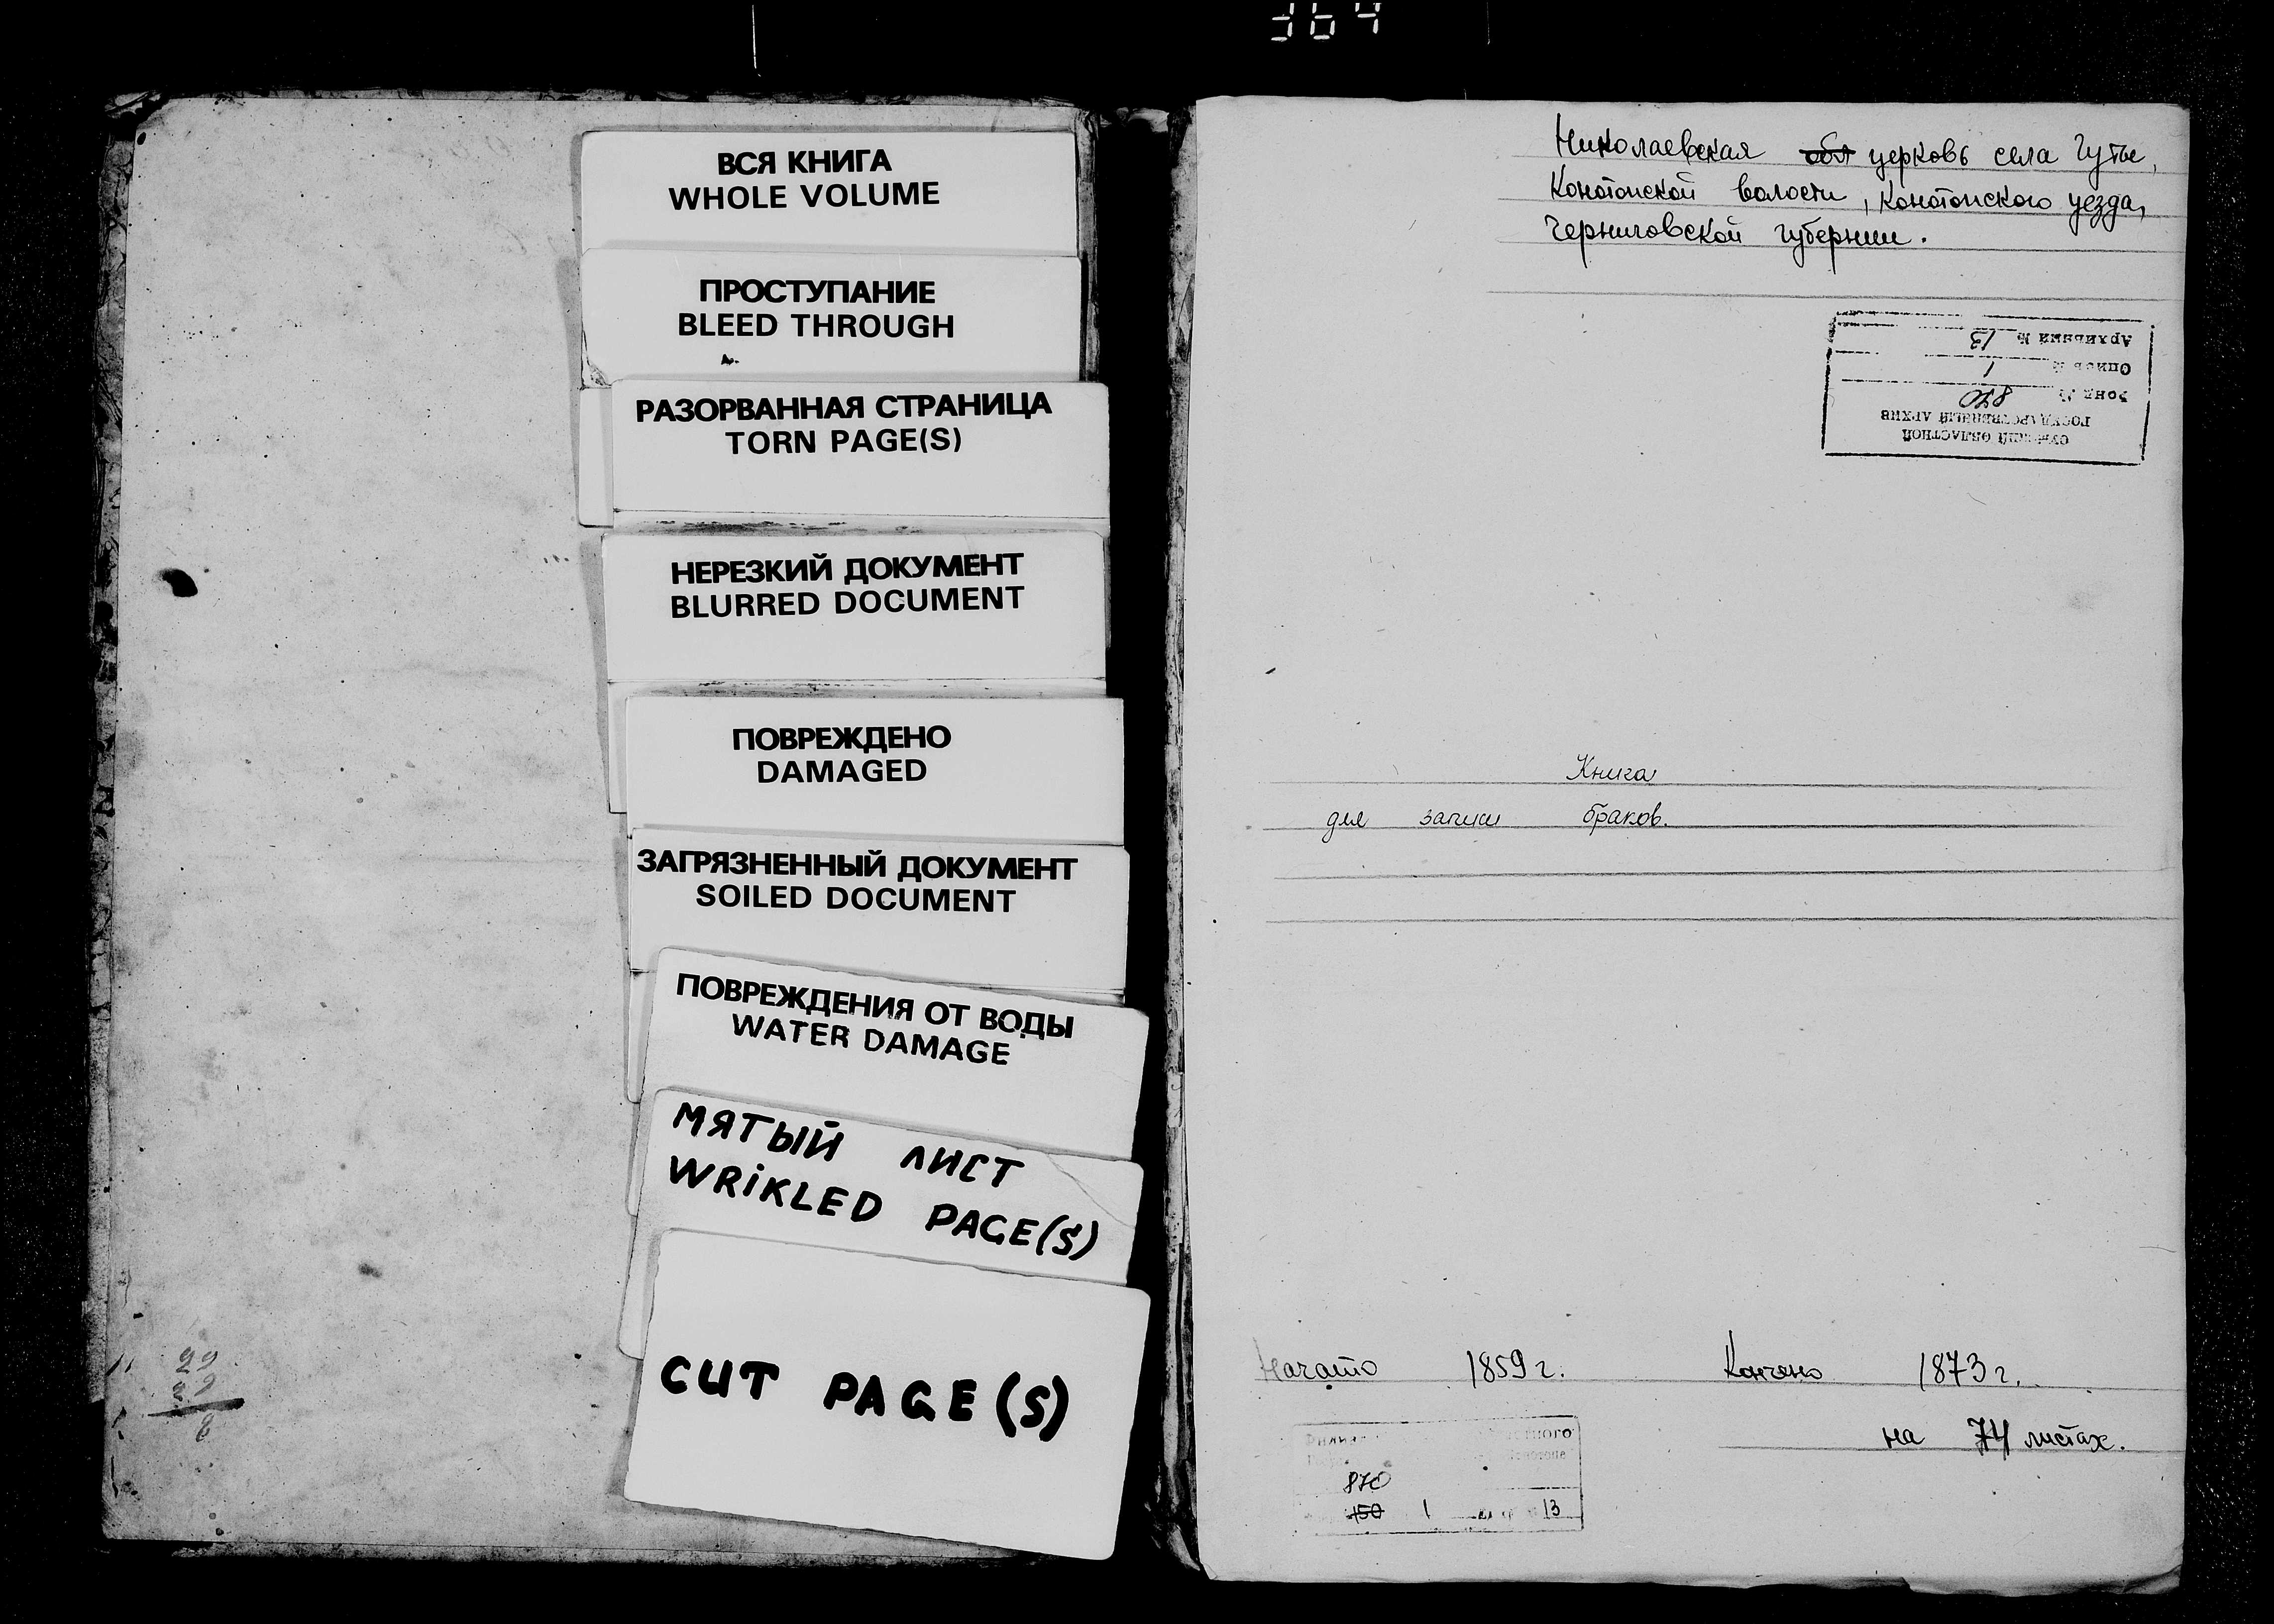 364
ВСЯ КНИГА
WHOLE VOLUME
ПРОСТУПАНИЕ
BLEED THROUGH
РАЗОРВАННАЯ СТРАНИЦА
TORN PAGE(S)
НЕРЕЗКИЙ ДОКУМЕНТ
BLURRED DOCUMENT
ПОВРЕЖДЕНО
DAMAGED
ЗАГРЯЗНЕННЫЙ ДОКУМЕНТ
SOILED DOCUMENT
ПОВРЕЖДЕНИЯ ОТ ВОДЫ
WATER DAMAGE
МЯТЫЙ ЛИСТ
WRIKLED PAGE(S)
CUT PAGE(S)
29
Николаевская церковь села Гуты,
Конотопской волости, Конотопского уезда,
Черниговской губернии.
СУМСКИЙ ОБЛАСТНОЙ
ГОСУДАРСТВЕННЫЙ АРХИВ
Фонд № 870
Опись № 1
Архивный № 13
Книга
для записи браков.
Начато 1859 г. Кончено 1873 г.
на 74 листах.
870
150 1 13